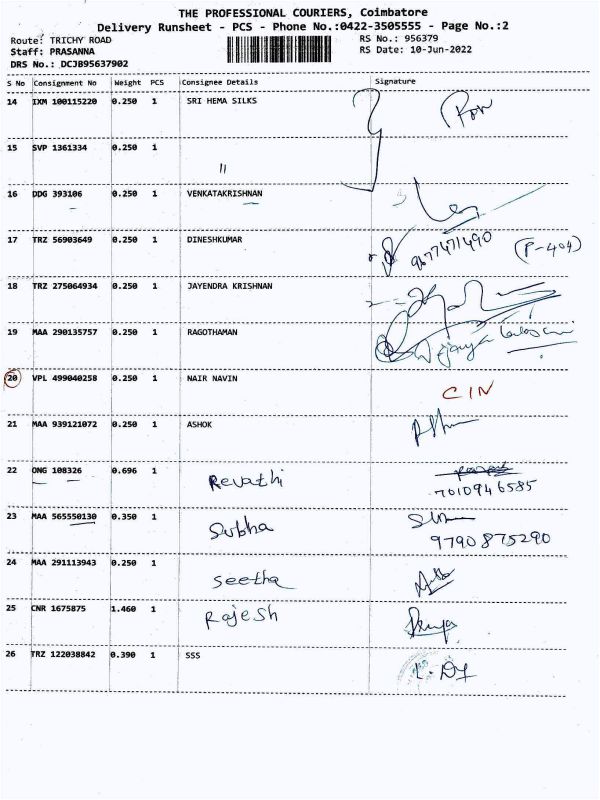 THE PROFESSIONAL COURIERS, Coimbatore
Delivery Runsheet - PCS - Phone No.:0422-3505555 - Page No.:2
Route: TRICHY ROAD RS No.: 956379
Staff: PRASANNA RS Date: 10-Jun-2022
DRS No.: DCJB95637902
S No Consignment No Weight PCS Consignee Details Signature
14 IXM 100115220 0.250 1 SRI HEMA SILKS
15 SVP 1361334 0.250 1 11
16 DDG 393106 0.250 1 VENKATAKRISHNAN
17 TRZ 56903649 0.250 1 DINESHKUMAR 9677471490 (P-404)
18 TRZ 275064934 0.250 1 JAYENDRA KRISHNAN
19 MAA 290135757 0.250 1 RAGOTHAMAN
20 VPL 499040258 0.250 1 NAIR NAVIN CIN
21 MAA 939121072 0.250 1 ASHOK
22 ONG 108326 0.696 1 Revathi 7010946585
23 MAA 565550130 0.350 1 Subha 9790875290
24 MAA 291113943 0.250 1 Seetha
25 CNR 1675875 1.460 1 Rajesh
26 TRZ 122038842 0.390 1 SSS